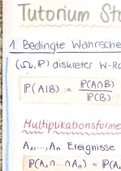 Tutorium Sto
1. Bedingte Wahrsche
(Ω, P) diskreter W-Ra
P(A|B) = P(A∩B)
P(B)
Multiplikationsforme
A₁,..., Aₙ Ereignisse
P(A₁∩...∩Aₙ) =